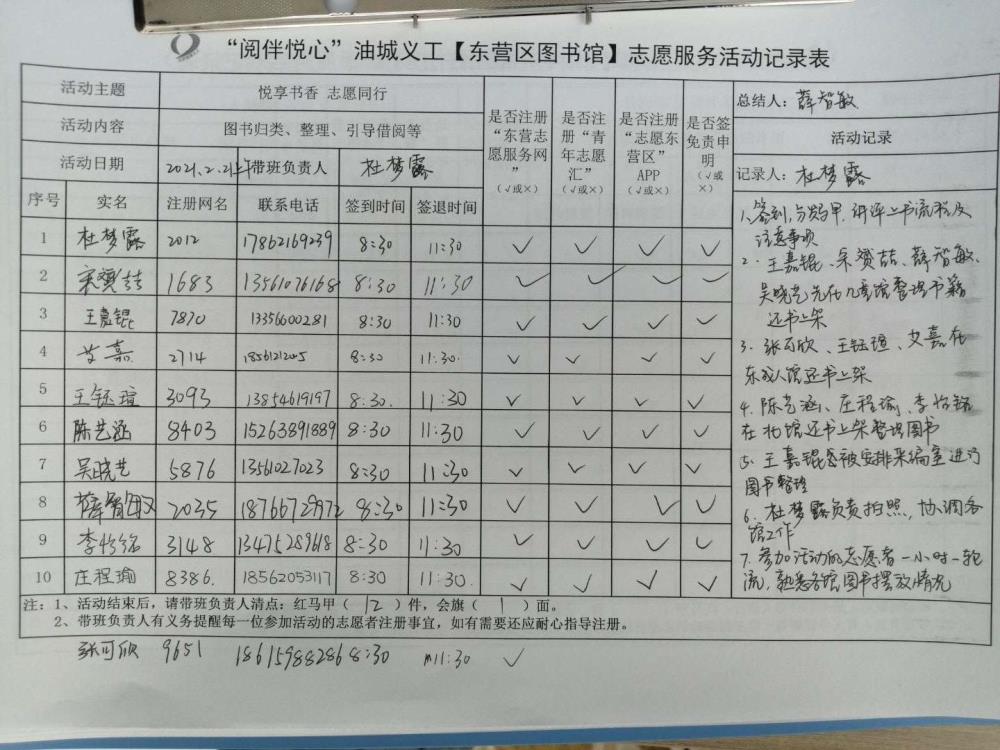 “阅伴悦心”油城义工【东营区图书馆】志愿服务活动记录表
活动主题 悦享书香 志愿同行
活动内容 图书归类、整理、引导借阅等
活动日期 2021.2.21上午 带班负责人 杜梦露
是否注册“东营志愿服务网” (√或×)
是否注册“青年志愿汇” (√或×)
是否注册“志愿东营区”APP (√或×)
是否签免责申明 (√或×)
总结人：薛智敏
活动记录
记录人：杜梦露
序号 实名 注册网名 联系电话 签到时间 签退时间
1 杜梦露 2012 17862169239 8:30 11:30 ✓ ✓ ✓ ✓
2 宋赟喆 1683 13561076168 8:30 11:30 ✓ ✓ ✓ ✓
3 王嘉锟 7870 13356600281 8:30 11:30 ✓ ✓ ✓ ✓
4 艾嘉 2714 8:30 11:30. ✓ ✓ ✓ ✓
5 王钰瑄 3093 13854619197 8:30. 11:30 ✓ ✓ ✓ ✓
6 陈艺涵 8403 15263891889 8:30 11:30 ✓ ✓ ✓ ✓
7 吴晓艺 5876 13561027023 8:30 11:30 ✓ ✓ ✓ ✓
8 薛智敏 2035 18766729972 8:30 11:30 ✓ ✓ ✓ ✓
9 李怡铭 3148 13475289618 8:30 11:30 ✓ ✓ ✓ ✓
10 庄程瑜 8386. 18562053117 8:30 11:30. ✓ ✓ ✓ ✓
1、签到,分发马甲,讲评上书流程及
注意事项
2. 王嘉锟、宋赟喆、薛智敏、
吴晓艺先在儿童馆整理书籍
还书上架
3. 张可欣、王钰瑄、艾嘉在
东成人馆还书上架
4. 陈艺涵、庄程瑜、李怡铭
在北馆还书上架整理图书
5. 王嘉锟被安排采编室进行
图书整理
6. 杜梦露负责拍照,协调各
馆工作
7. 参加活动的志愿者一小时一轮
流,熟悉各馆图书摆放情况
注：1、活动结束后，请带班负责人清点：红马甲（ 12 ）件，会旗（ 1 ）面。
2、带班负责人有义务提醒每一位参加活动的志愿者注册事宜，如有需要还应耐心指导注册。
张可欣 9651 18615988286 8:30 11:30 ✓